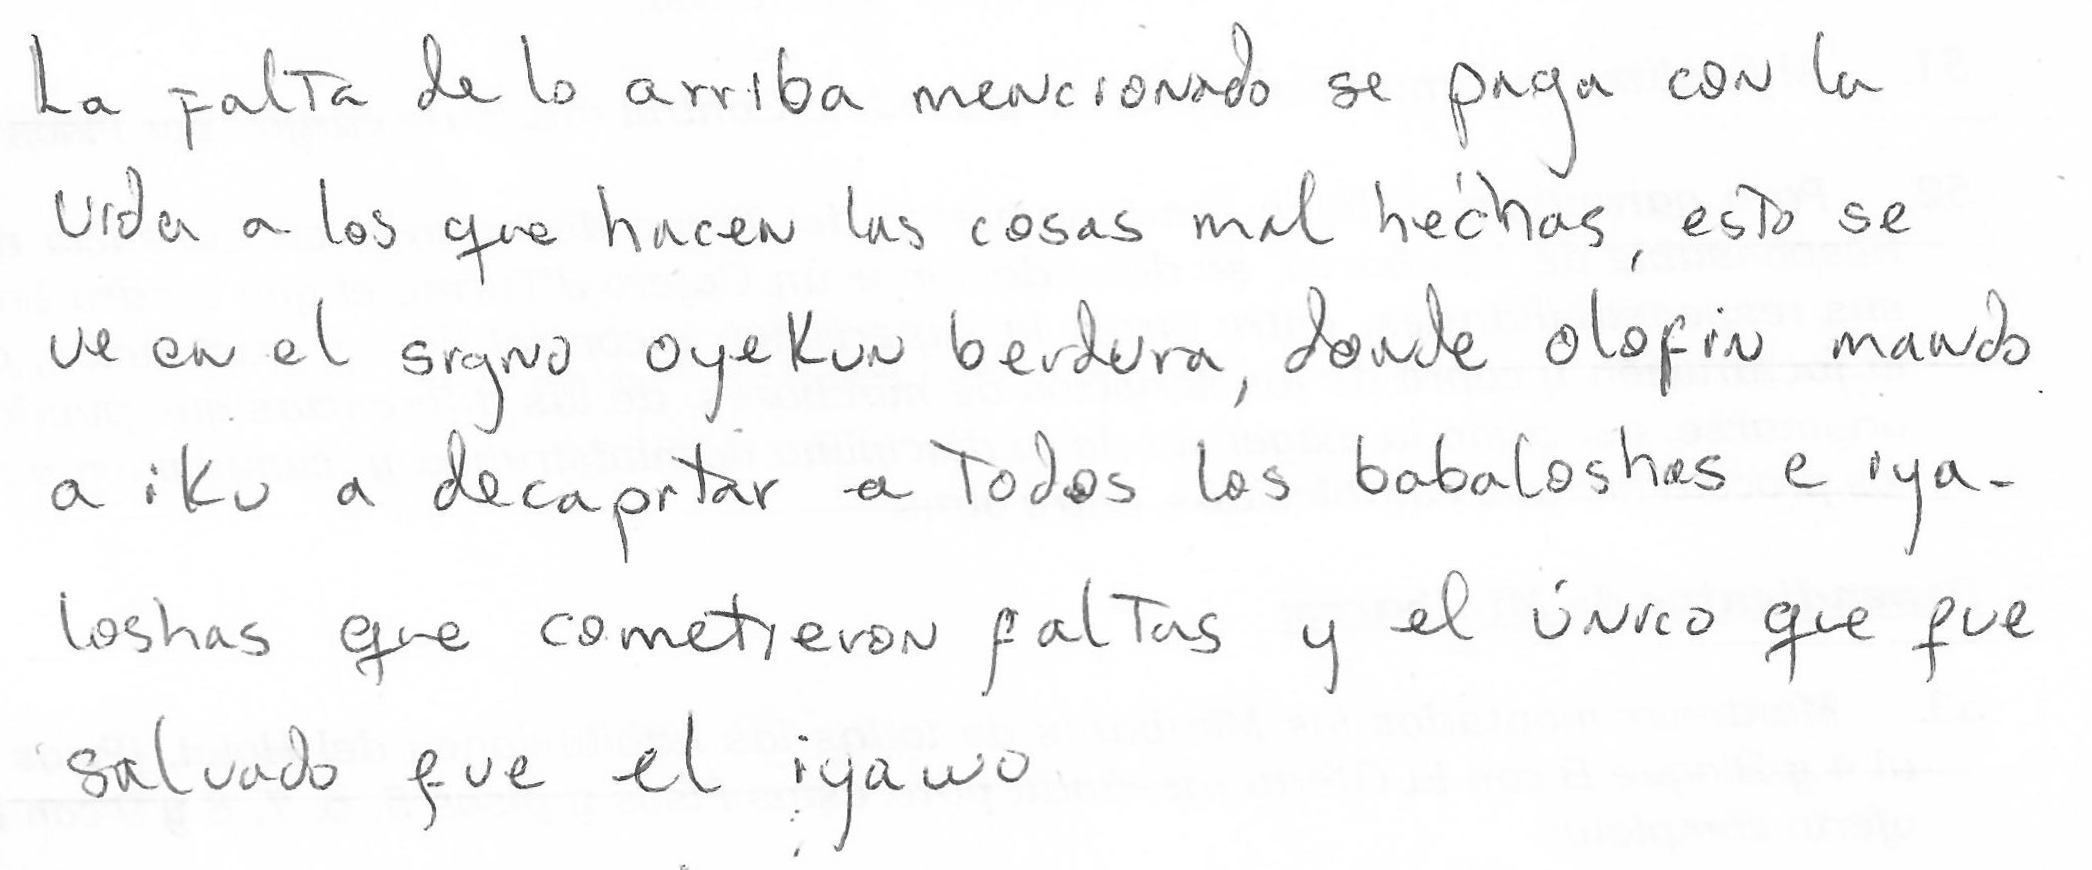 La falta de lo arriba mencionado se paga con la
vida a los que hacen las cosas mal hechas, esto se
ve en el signo oyekun berdura, donde olofin mando
a iku a decapitar a Todos los babaloshas e iya-
loshas que cometieron faltas y el único que fue
salvado fue el iyawo